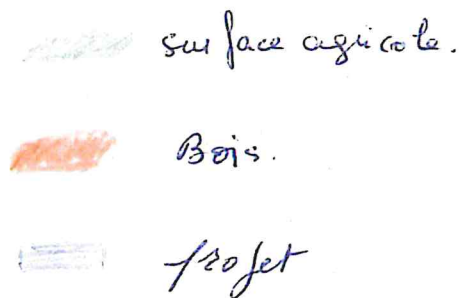 surface agricole.
Bois.
projet